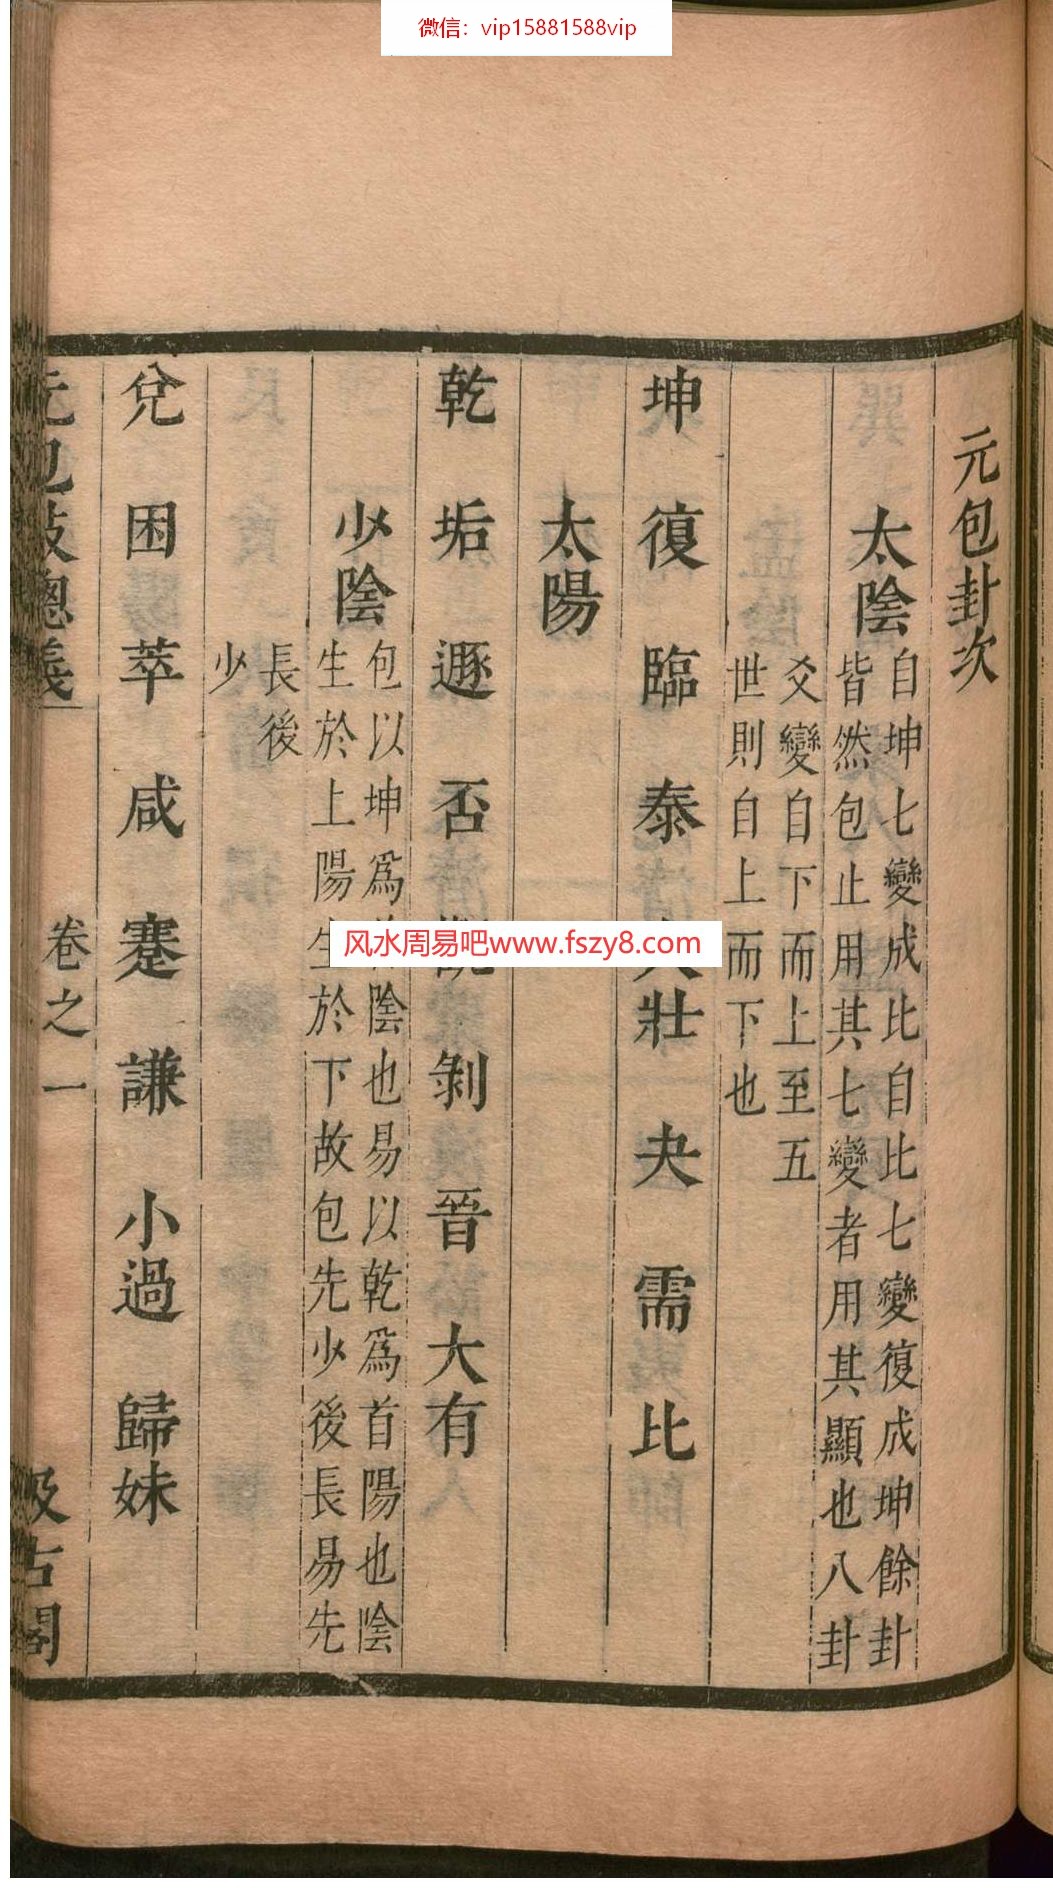 微信：vip15881588vip
元包卦次
太陰
自坤七變成比自比七變復成坤餘卦
皆然包止用其七變者用其顯也八卦
爻變自下而上至五
世則自上而下也
坤 復 臨 泰 大壯 夬 需 比
太陽
乾 垢 遯 否 剝 晉 大有
少陰
包以坤爲陰也易以乾爲首陽也陰
生於上陽生於下故包先少後長易先
長後
少
兌 困 萃 咸 蹇 謙 小過 歸妹
元包數總義 卷之一 汲古閣
风水周易吧www.fszy8.com